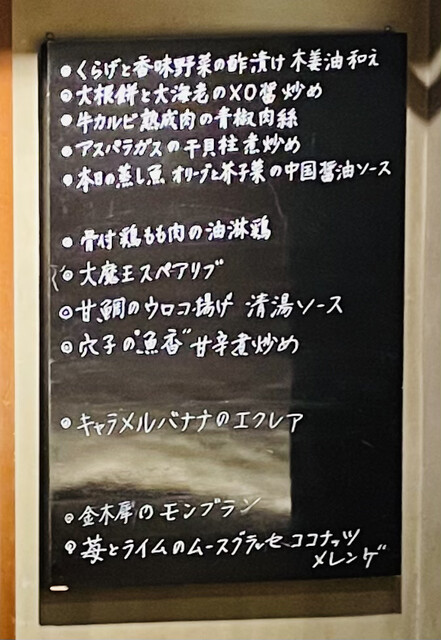 • くらげと香味野菜の酢漬け 木姜油和え
• 大根餅と大海老のXO醤炒め
• 牛カルビ熟成肉の青椒肉絲
• アスパラガスの干貝柱煮炒め
• 本日の蒸し魚 オリーブと芥子菜の中国醤油ソース
• 骨付鶏もも肉の油淋鶏
• 大魔王スペアリブ
• 甘鯛のウロコ揚げ 清湯ソース
• 穴子の"魚香"甘辛煮炒め
• キャラメルバナナのエクレア
• 金木犀のモンブラン
• 苺とライムのムースグラッセ ココナッツ
メレンゲ